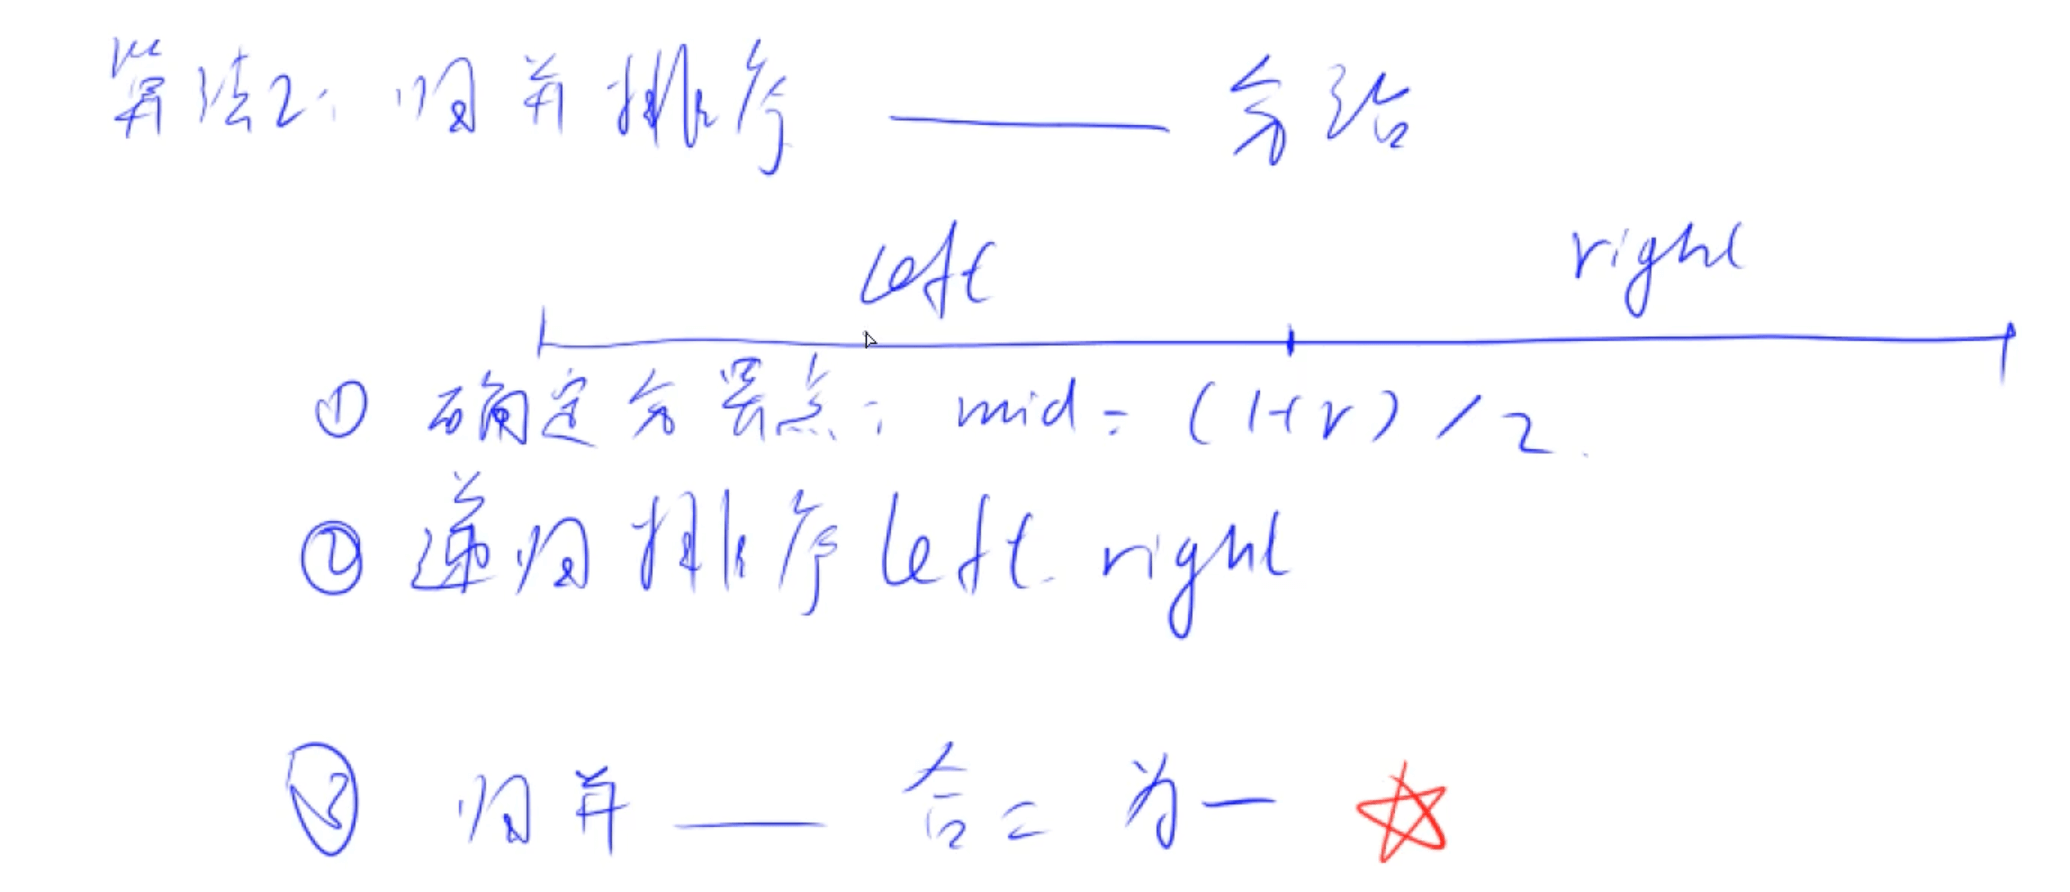 算法2: 归并排序 —— 分治
left right
① 确定分界点: mid = (l+r) / 2.
② 递归排序 left. right
③ 归并 —— 合二为一